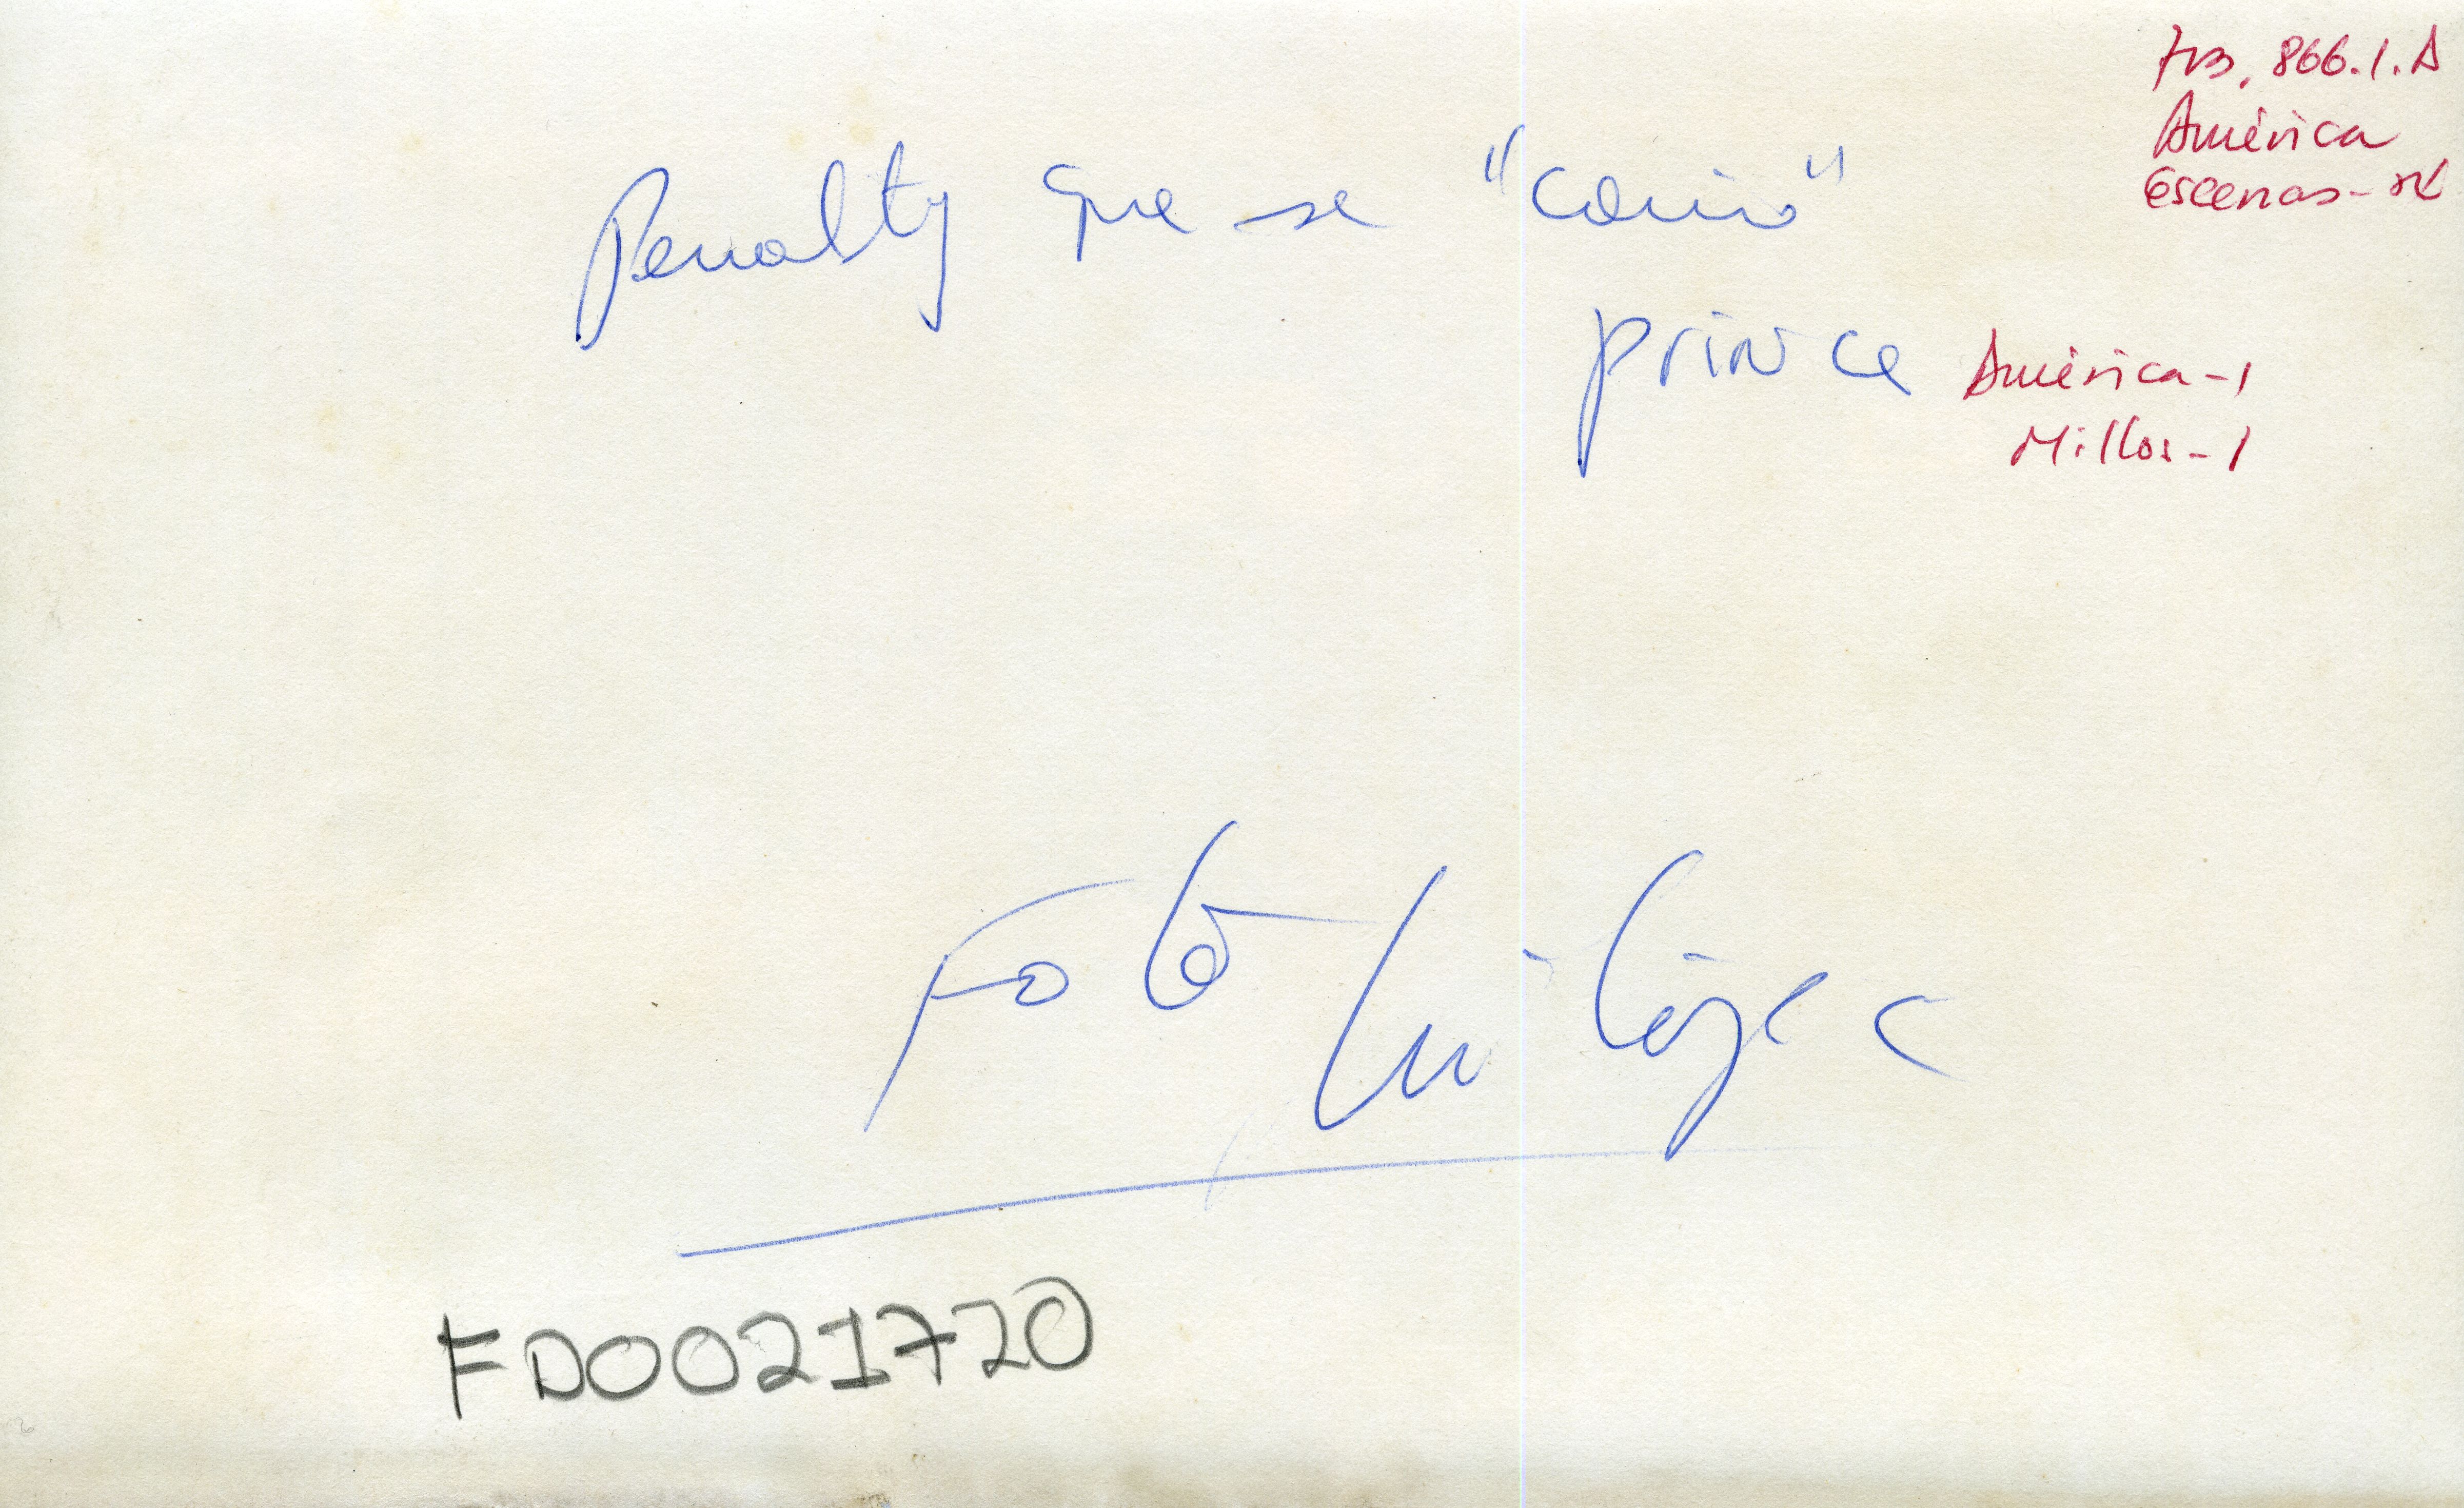 866.1.A
América
Escenas-
Penalty que se "comió"
prince
América-1
Millos-1
Foto
FD0021720